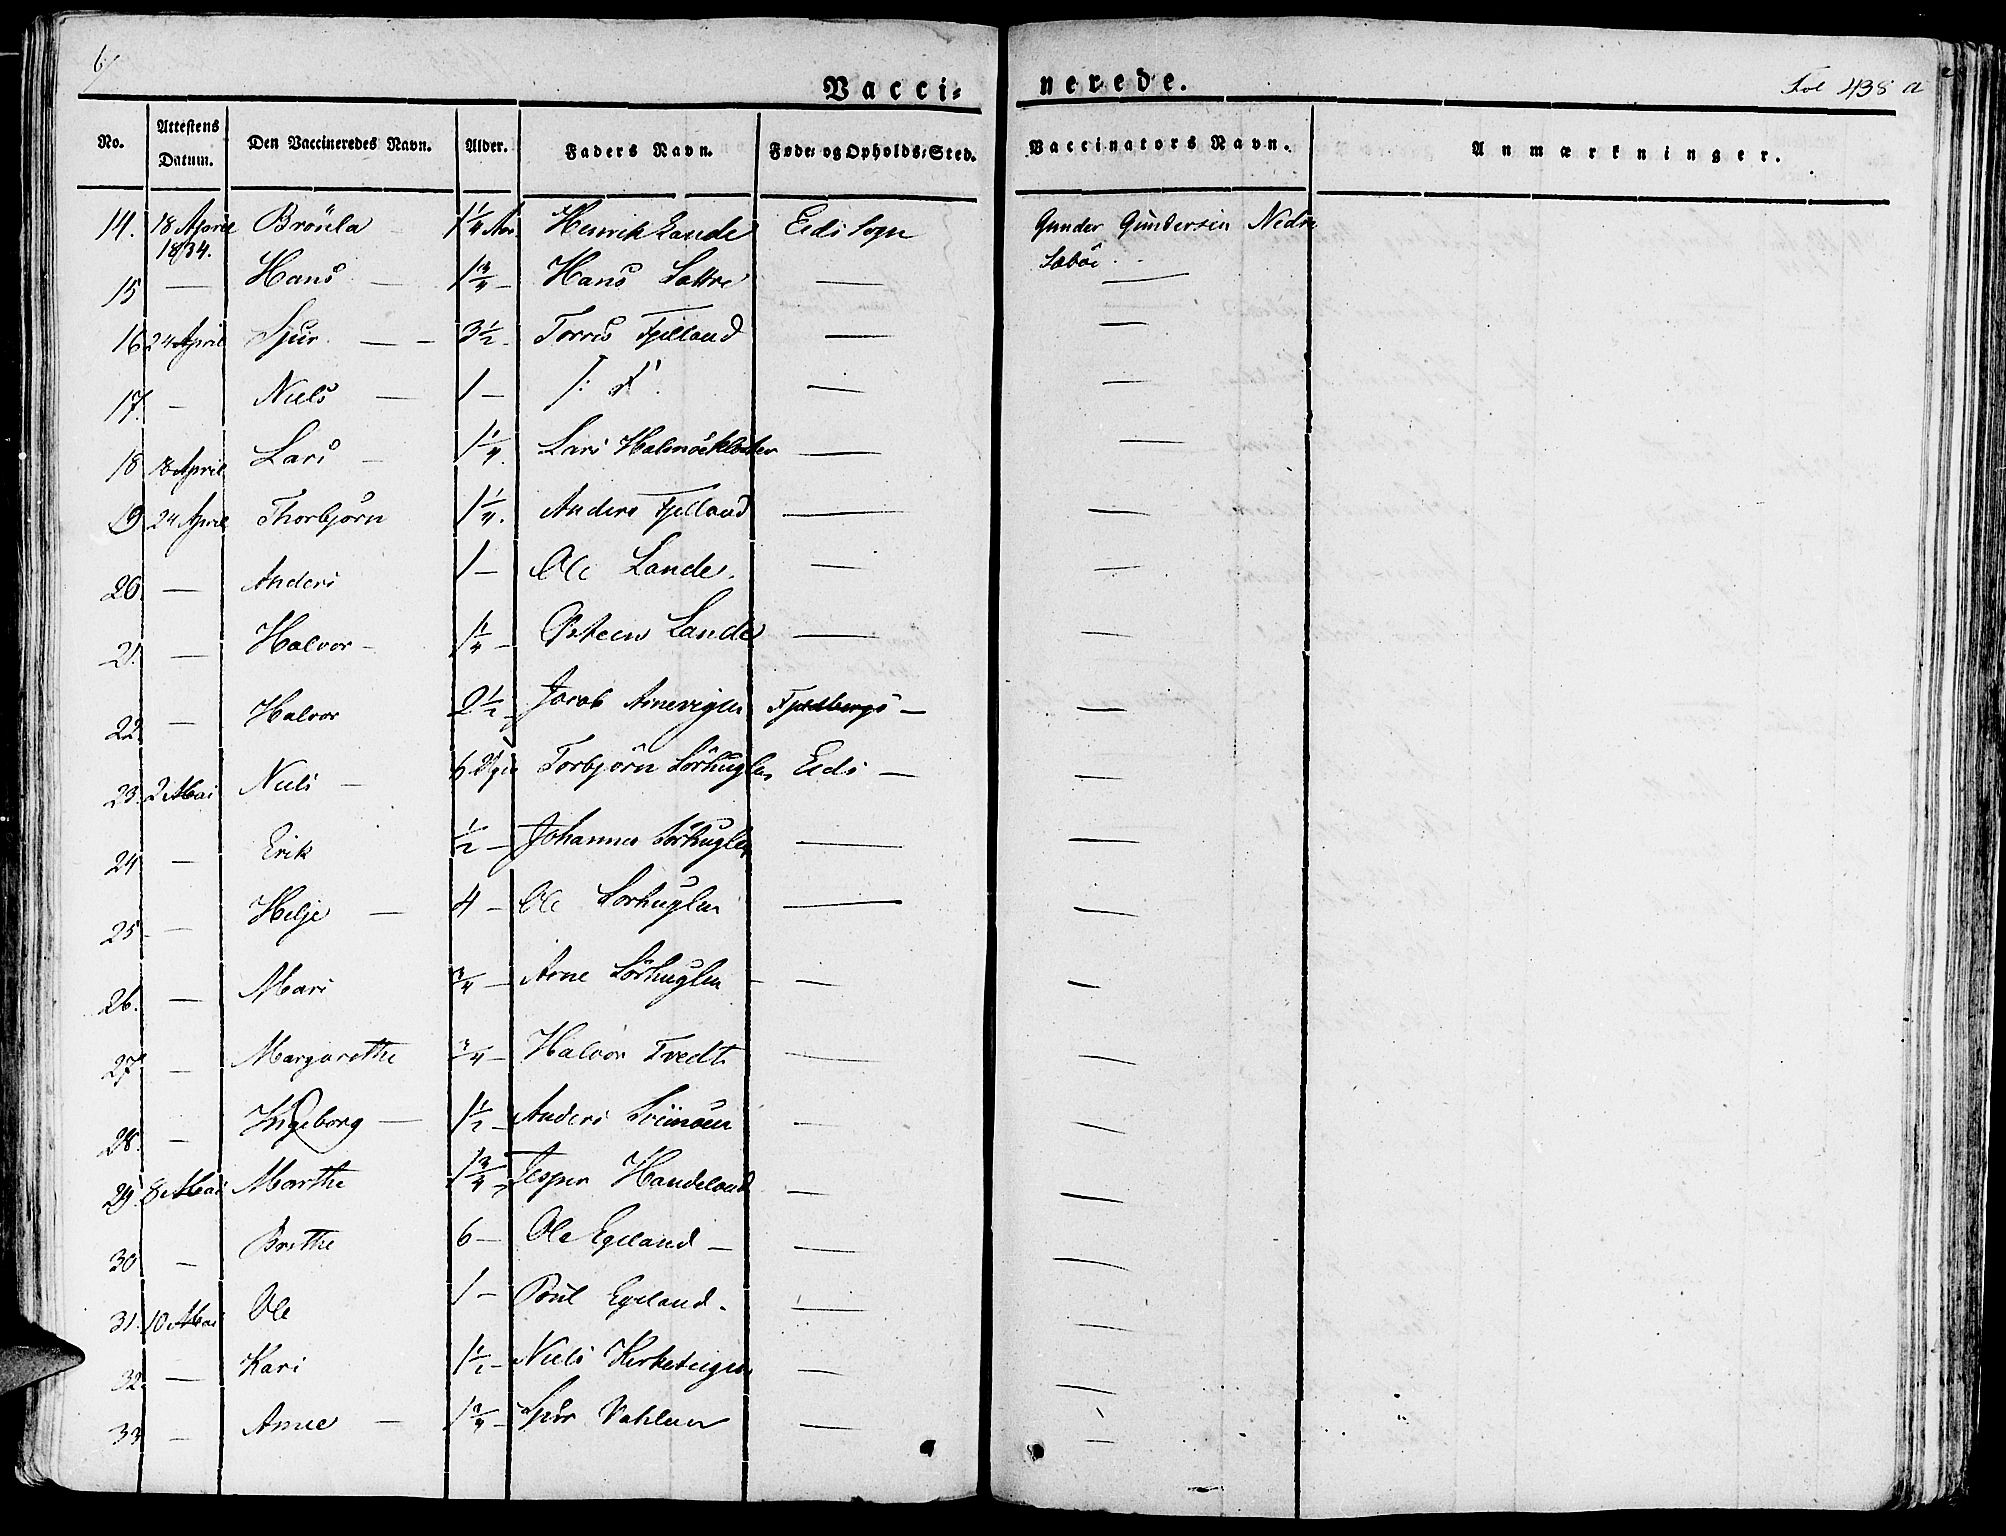 6/
Vacci- nerede.
Fol 438 a
No. Attestens Datum. Den Vaccineredes Navn. Alder. Faders Navn. Føde- og Opholds-Sted. Vaccinators Navn. Anmærkninger.
14. 18 April 1834. Brönla 1 1/4 Aar Henrik Lande Eids Sogn Gunder Gundersen Nedre Sæböe
15 — Hans — 1 3/4 Hans Sættre — —
16 24 April Sjur — — 3 1/2 - Torris Fjelland — —
17. — Niels — 1 — — —
18 18 April Lars — 1 1/4. Lars — —
19 24 April Thorbjørn 1 1/4. Anders Fjelland — —
20. — Anders 1 — Ole Lande. — —
21. — Halvor - 1 1/4 — Østeen Lande — —
22. — Halvor 2 1/2 - Jacob Arnevigen Fjeldbergs — —
23. 2 Mai Niels — 6 Uger Torbjörn Sörhuglen Eids — —
24 — Erik 1/2 — Johannes Sörhuglen — —
25 - — Helje — 4 — Ole Sörhuglen — —
26. — Mari 3/4 — Arne Sörhuglen — —
27. — Margarethe 3/4 — Halvor Tvedt — —
28. — Ingeborg — 1 1/2 - Anders — —
29. 8 Mai Marthe 1 3/4 - Jesper Handeland — —
30 — Brithe 6 — Ole Egeland — — —
31. 10 Mai Ole 1 — Poul Egeland. — —
32. — Kari 1 1/2 - Niels Kirketeigen — —
33 — Anne — 1 3/4 - Sjur Vahlen — —